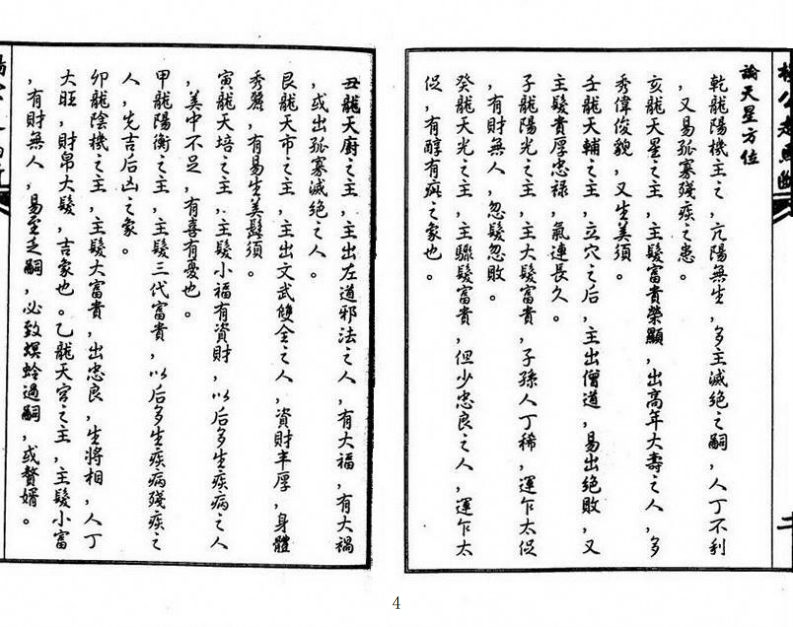 論天星方位
乾龍陽機主之，亢陽無生，多主滅绝之嗣，人丁不利
，又易孤寡殘疾之患。
亥龍天星之主，主髮富貴榮顯，出高年大壽之人，多
秀偉俊貌，又生美须。
壬龍天輔之主，立穴之后，主出僧道，易出绝敗，又
主髮貴厚忠禄，氣連長久。
子龍陽光之主，主大髮富貴，子孫人丁稀，運乍太促
，有財無人，忽髮忽敗。
癸龍天光之主，主驟髮富貴，但少忠良之人，運乍太
促，有醇有疵之象也。
丑龍天廚之主，主出左道邪法之人，有大福，有大禍
，或出孤寡滅绝之人。
艮龍天市之主，主出文武雙全之人，資財丰厚，身體
秀麗，有易生美髮须。
寅龍天培之主，主髮小福有資財，以后多生疾病之人
，美中不足，有喜有憂也。
甲龍陽衡之主，主髮三代富貴，以后多生疾病殘疾之
人，先吉后凶之象。
卯龍陰機之主，主髮大富貴，出忠良，生將相，人丁
大旺，財帛大髮，吉象也。乙龍天宫之主，主髮小富
，有財無人，易至乏嗣，必致螟蛉過嗣，或贅婿。
二
4